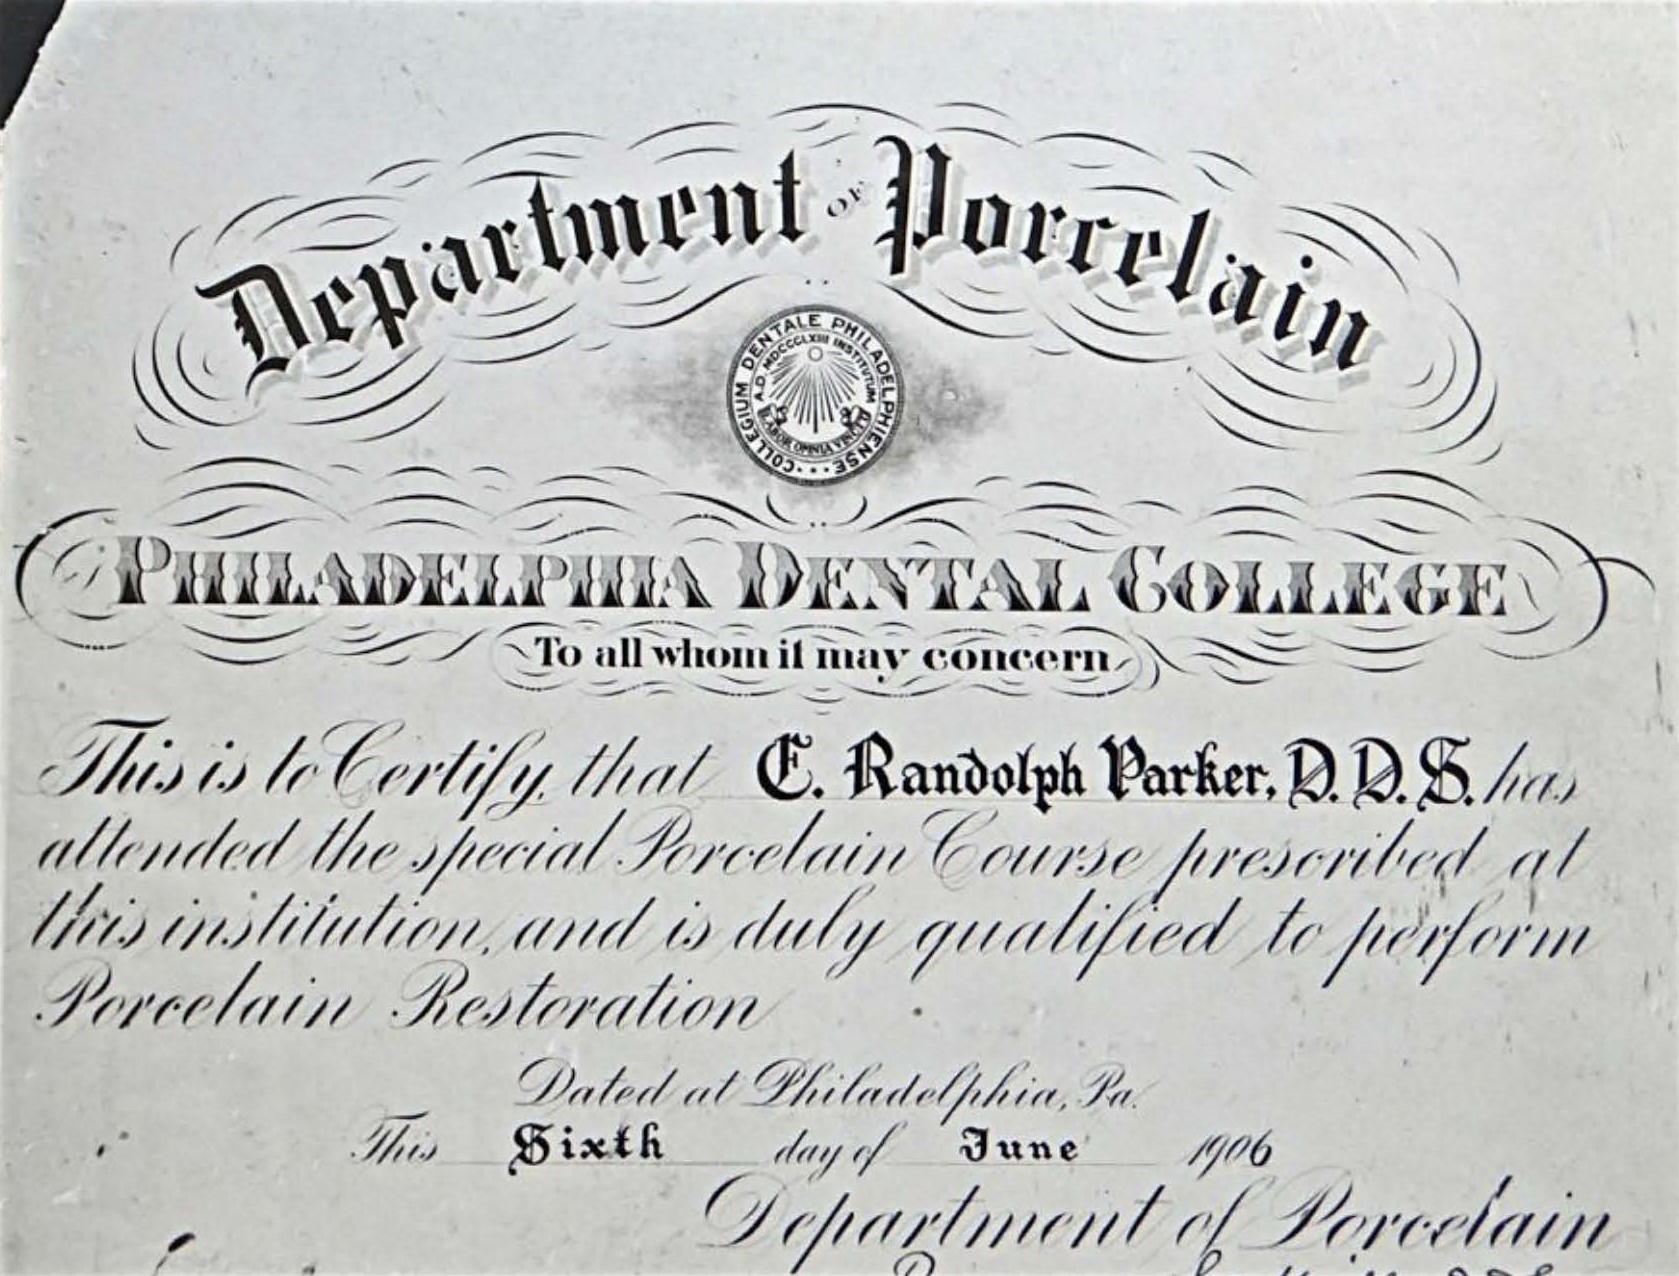 Department OF Porcelain
COLLEGIUM DENTALE PHILADELPHIENSE
A.D. MDCCCLXIII INSTITUTUM
LABOR OMNIA VINCIT
PHILADELPHIA DENTAL COLLEGE
To all whom it may concern
This is to Certify, that E. Randolph Parker, D.D.S. has
attended the special Porcelain Course prescribed at
this institution, and is duly qualified to perform
Porcelain Restoration
Dated at Philadelphia, Pa.
This Sixth day of June 1906
Department of Porcelain